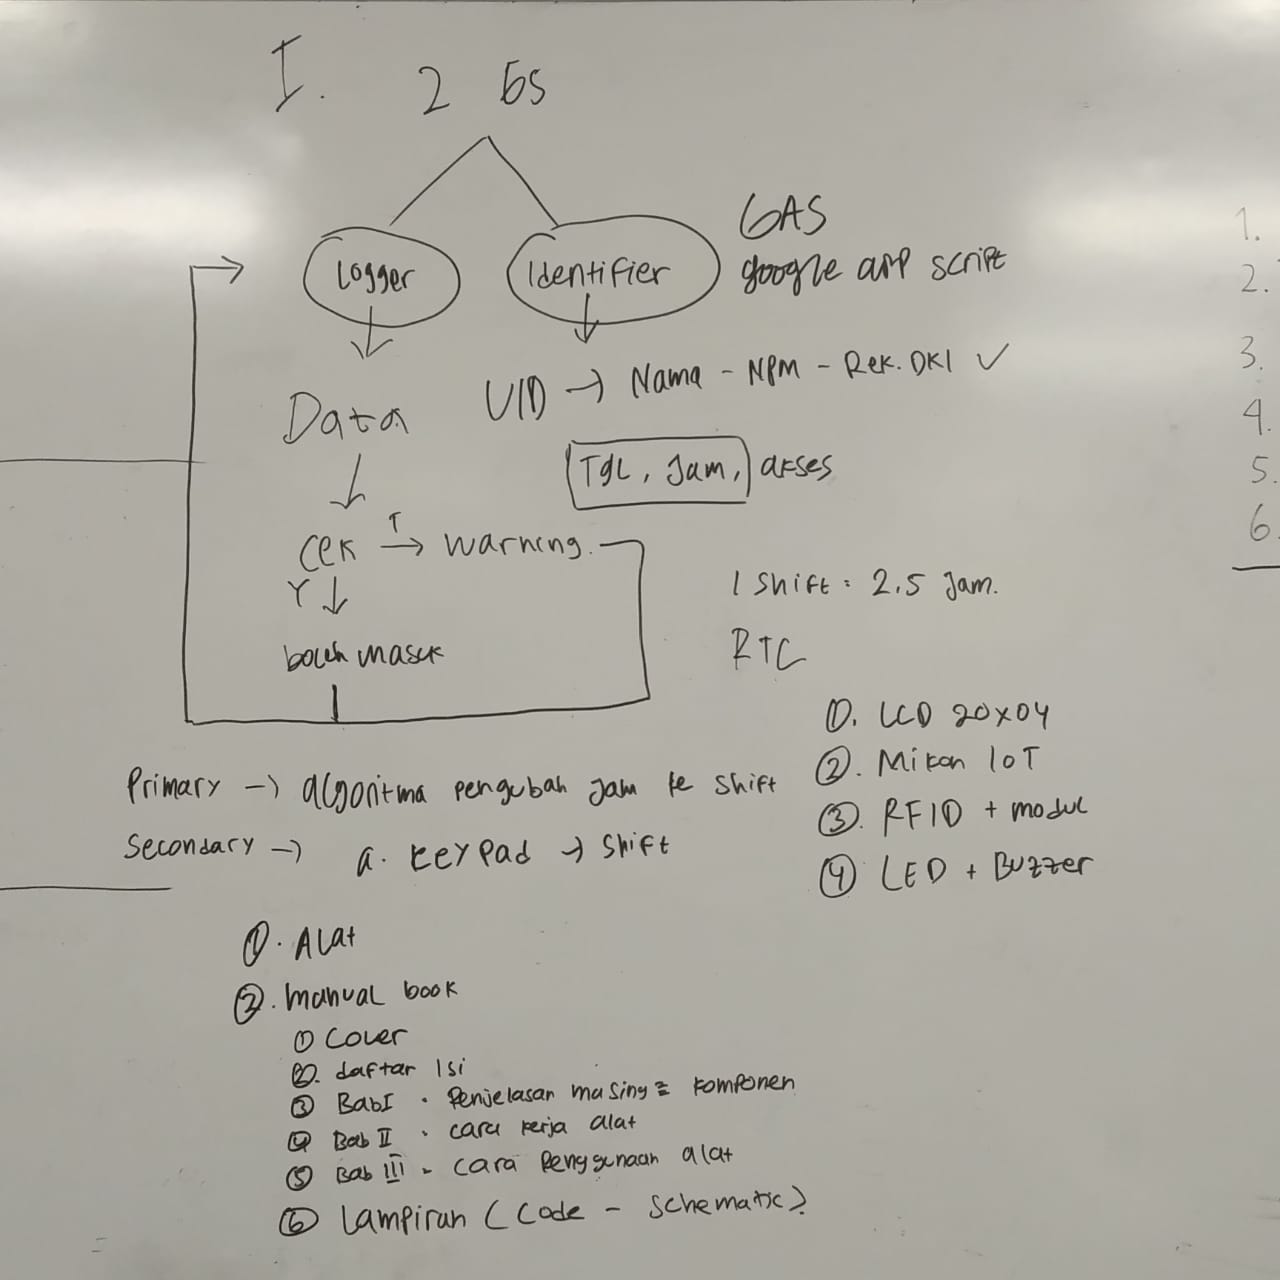 I. 2 GS
Logger
Identifier
GAS
google app script
Data
UID → Nama - NPM - Rek. DKI ✓
Tgl, Jam, akses
Cek T → Warning.
Y ↓
boleh masuk
1 Shift : 2.5 Jam.
RTC
①. LCD 20x04
②. Mikon IoT
③. RFID + modul
④ LED + Buzzer
Primary → algoritma pengubah Jam ke Shift
Secondary → a. Keypad → Shift
①. Alat
②. manual book
① Cover
②. daftar Isi
③ Bab I . Penjelasan masing² komponen
④ Bab II . cara kerja alat
⑤ Bab III - cara Penggunaan alat
⑥ Lampiran (Code - Schematic)
1.
2.
3.
4.
5.
6.